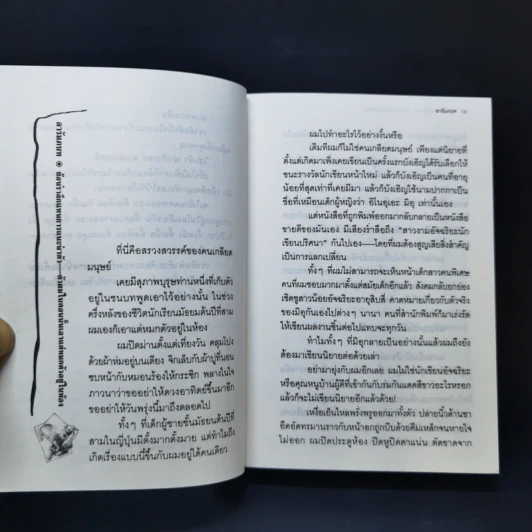 ที่นี่คือสรวงสวรรค์ของคนเกลียด
มนุษย์
เคยมีสุภาพบุรุษท่านหนึ่งที่เก็บตัว
อยู่ในชนบทพูดเอาไว้อย่างนั้น ในช่วง
ครึ่งหลังของชีวิตนักเรียนมัธยมต้นปีที่สาม
ผมเองก็เอาแต่หมกตัวอยู่ในห้อง
ผมปิดม่านตั้งแต่เที่ยงวัน คลุมโปง
ด้วยผ้าห่มอยู่บนเตียง จิกเล็บกับผ้าปูที่นอน
ซบหน้ากับหมอนร้องไห้กระซิก พลางในใจ
ภาวนาว่าขออย่าให้ดวงอาทิตย์ขึ้นมาอีก
ขออย่าให้วันพรุ่งนี้มาถึงตลอดไป
ทั้งๆ ที่เด็กผู้ชายชั้นมัธยมต้นปีที่
สามในญี่ปุ่นมีตั้งมากตั้งมาย แต่ทำไมถึง
เกิดเรื่องแบบนี้ขึ้นกับผมอยู่ได้คนเดียว
อารัมภบท
ผมไปทำอะไรไว้อย่างงั้นหรือ
เดิมทีผมก็ไม่ใช่คนเกลียดมนุษย์ เพียงแต่นิยายที่
ตั้งแต่เกิดมาเพิ่งเคยเขียนเป็นครั้งแรกบังเอิญได้รับเลือกให้
ชนะรางวัลนักเขียนหน้าใหม่ แล้วก็บังเอิญเป็นคนที่อายุ
น้อยที่สุดเท่าที่เคยมีมา แล้วก็บังเอิญใช้นามปากกาเป็น
ชื่อที่เหมือนเด็กผู้หญิงว่า อิโนอุเอะ มิอุ เท่านั้นเอง
แต่หนังสือที่ถูกพิมพ์ออกมากลับกลายเป็นหนังสือ
ขายดีของมันเอง มีเสียงร่ำลือถึง “สาวงามอัจฉริยะนัก
เขียนปริศนา” กันไปเอง—โดยที่ผมต้องสูญเสียสิ่งสำคัญ
เป็นการแลกเปลี่ยน
ทั้งๆ ที่ผมไม่สามารถจะเห็นหน้าเด็กสาวคนพิเศษ
คนที่ผมชอบมากมาตั้งแต่สมัยเด็กยิ้มได้อีกแล้ว สังคมกลับยกย่อง
เชิดชูสาวน้อยอัจฉริยะอายุสิบสี่ คาดหมายเกี่ยวกับตัวจริง
ของมิอุกันเองไปต่างๆ นานา คนที่สำนักพิมพ์ก็มาเร่งรัด
ให้เขียนผลงานชิ้นต่อไปแทบจะทุกวัน
ทำไมทั้งๆ ที่มิอุกลายเป็นอย่างนั้นแล้วผมถึงยัง
ต้องมาเขียนนิยายต่อด้วยเล่า
อย่ามายุ่งกับผมอีกเลย ผมไม่ใช่นักเขียนอัจฉริยะ
หรือคุณหนูบ้านผู้ดีที่เข้ากันกับร่มกันแดดสีขาวอะไรหรอก
แล้วก็จะไม่เขียนนิยายอีกแล้วด้วย!
เหงื่อเย็นไหลพรั่งพรูออกมาทั้งตัว ปลายนิ้วด้านชา
อึดอัดทรมานราวกับหน้าอกถูกบีบด้วยคีมเหล็กจนหายใจ
ไม่ออก ผมปิดประตูห้อง ปิดหูปิดตาแน่น ตัดขาดจาก